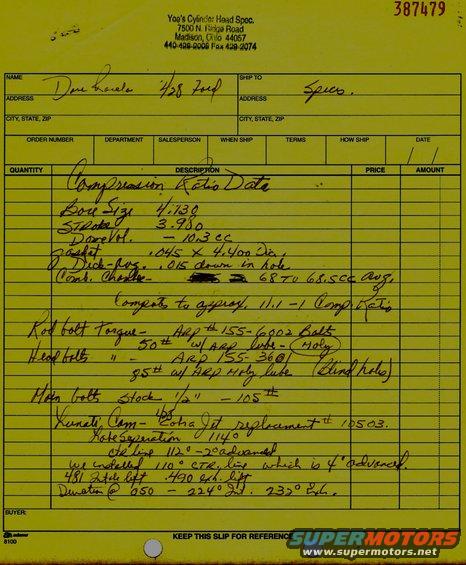 387479
Yoe's Cylinder Head Spec.
7500 N. Ridge Road
Madison, Ohio 44057
440-428-2008 Fax 428-2074
NAME Dave 428 Ford SHIP TO Specs.
ADDRESS ADDRESS
CITY, STATE, ZIP CITY, STATE, ZIP
ORDER NUMBER DEPARTMENT SALESPERSON WHEN SHIP TERMS HOW SHIP DATE
QUANTITY DESCRIPTION PRICE AMOUNT
Compression Ratio Data
Bore Size 4.130
Stroke 3.980
Dome Vol. - 10.3 cc
gasket .045 x 4.400 Dia.
Deck-Avg. .015 down in hole.
Comb. Chamber 68 TO 68.5cc Avg.
Computs to approx. 11.1-1 Comp. Ratio
Rod bolt Torque - ARP # 155-6002 Bolts
50# w/ ARP lube - (Moly)
Head bolts " - ARP 155-3601
85# w/ ARP Moly lube (Blind hole)
Main bolts stock 1/2" - 105#
Lunati Cam - 428 Cobra Jet replacement # 10503.
Lobe Seperation 114°
CTR line 112° - 2° advanced
we installed 110° CTR. line which is 4° advanced.
.481 Intake lift .490 exh. lift
Duration @ .050 - 224° Int. 232° Exh.
BUYER:
adams
8100
KEEP THIS SLIP FOR REFERENCE
SUPERMOTORS
www.supermotors.net